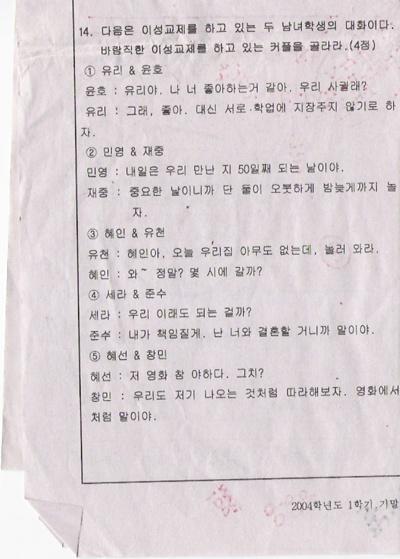 14. 다음은 이성교제를 하고 있는 두 남녀학생의 대화이다.
바람직한 이성교제를 하고 있는 커플을 골라라.(4점)
① 유리 & 윤호
윤호 : 유리야. 나 너 좋아하는거 같아. 우리 사귈래?
유리 : 그래, 좋아. 대신 서로 학업에 지장주지 않기로 하
자.
② 민영 & 재중
민영 : 내일은 우리 만난 지 50일째 되는 날이야.
재중 : 중요한 날이니까 단 둘이 오붓하게 밤늦게까지 놀
자.
③ 혜인 & 유천
유천 : 혜인아, 오늘 우리집 아무도 없는데, 놀러 와라.
혜인 : 와~ 정말? 몇 시에 갈까?
④ 세라 & 준수
세라 : 우리 이래도 되는 걸까?
준수 : 내가 책임질게. 난 너와 결혼할 거니까 말이야.
⑤ 혜선 & 창민
혜선 : 저 영화 참 야하다. 그치?
창민 : 우리도 저기 나오는 것처럼 따라해보자. 영화에서
처럼 말이야.
2004학년도 1학기, 기말